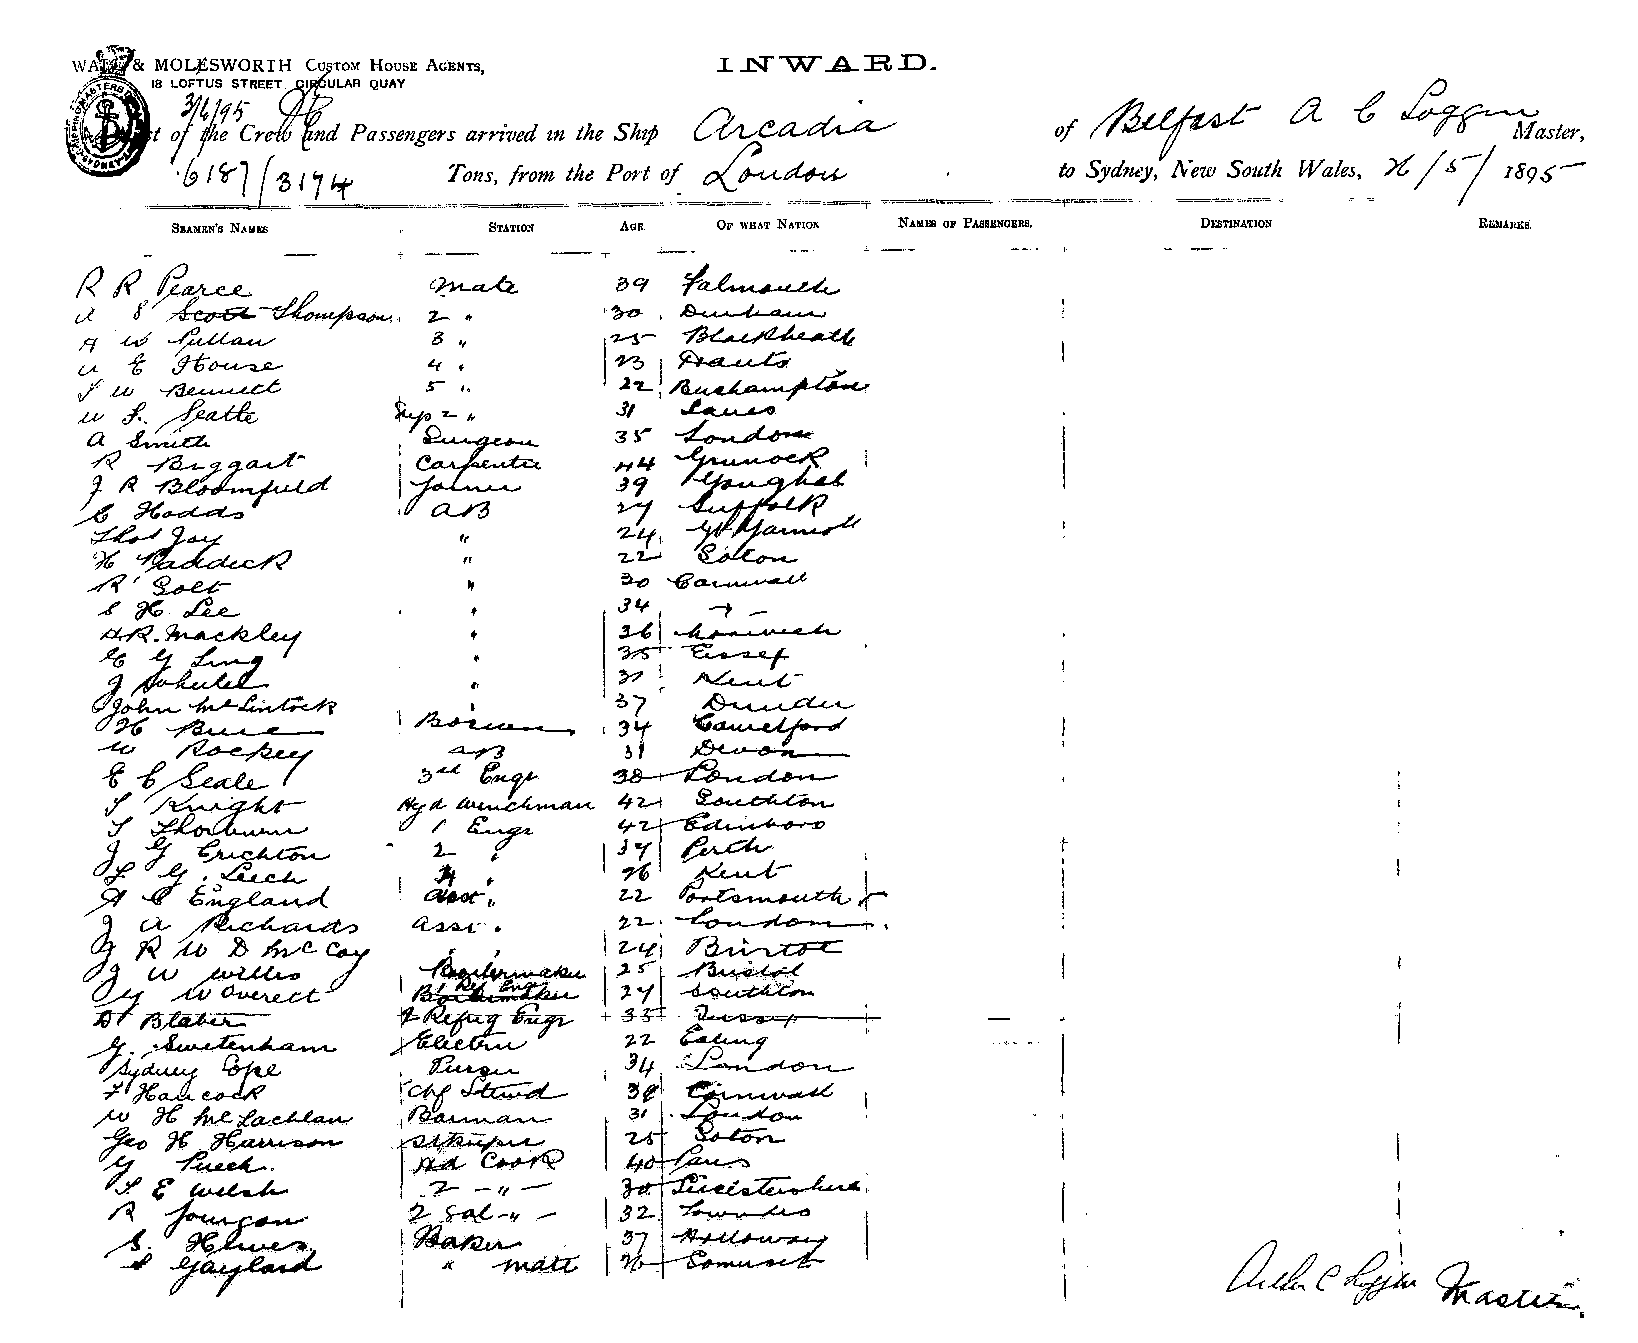 WALL & MOLESWORTH CUSTOM HOUSE AGENTS,
18 LOFTUS STREET CIRCULAR QUAY
INWARD.
3/6/95
of the Crew and Passengers arrived in the Ship Arcadia of Belfast A C Loggin Master,
6187/3174 Tons, from the Port of London to Sydney, New South Wales, 26/5/1895
SEAMEN'S NAMES STATION AGE OF WHAT NATION NAMES OF PASSENGERS. DESTINATION REMARKS.
R R Pearce Mate 39 Falmouth
A S Scott Thompson 2 " 30 Durham
A W Pullan 3 " 25 Blackheath
A E House 4 " 23 Hants
F W Bennett 5 " 22
W F. Seatle Sup 2 " 31 Lancs
A Smith Surgeon 35 London
R Biggart Carpenter 44 Greenock
J R Bloomfield Joiner 39 Youghal
C Hodds AB 27 Suffolk
Thos Jay " 24 Gt Yarmoth
H Paddick " 22 Soton
R Bolt " 30 Cornwall
S H Lee " 34 " -
H.R. Mackley " 36 Norwich
C G Ling " 35 Essex
J " 31 Kent
John McLintock " 37 Dundee
H Bosun 34 Camelford
W Rockey AB 31 Devon
E C Seale 3rd Engr 38 London
S Knight Hyd Winchman 42 Southton
T Thorburn 1 Engr 42 Edinboro
J G Crichton 2 " 37 Perth
F G. Leech 4 " 26 Kent
A C England Asst " 22 Portsmouth
J A Richards Assi " 22 London
J R W D McCoy " " 24 Bristol
J W Willis Boilermaker 25 Bristol
G W Overect Ref Engr 27 Southton
D Blaber 2 Refrig Engr 33 Sussex
G. Swetenham Electrn 22 Ealing
Sydney Cope Purser 34 London
F Hancock Chf Stewd 38 Cornwall
W H McLachlan Barman 31 London
Geo H Harrison Stkeeper 25 Soton
G Puech. Hd Cook 40 Paris
T E Welsh 2 - " - 30 Leicestershire
R Jourgon 2 Sal - " - 32
S. Hewes Baker 37 Holloway
S Gaylard " Mate 26 Somerset
Arthur C Loggin Master.